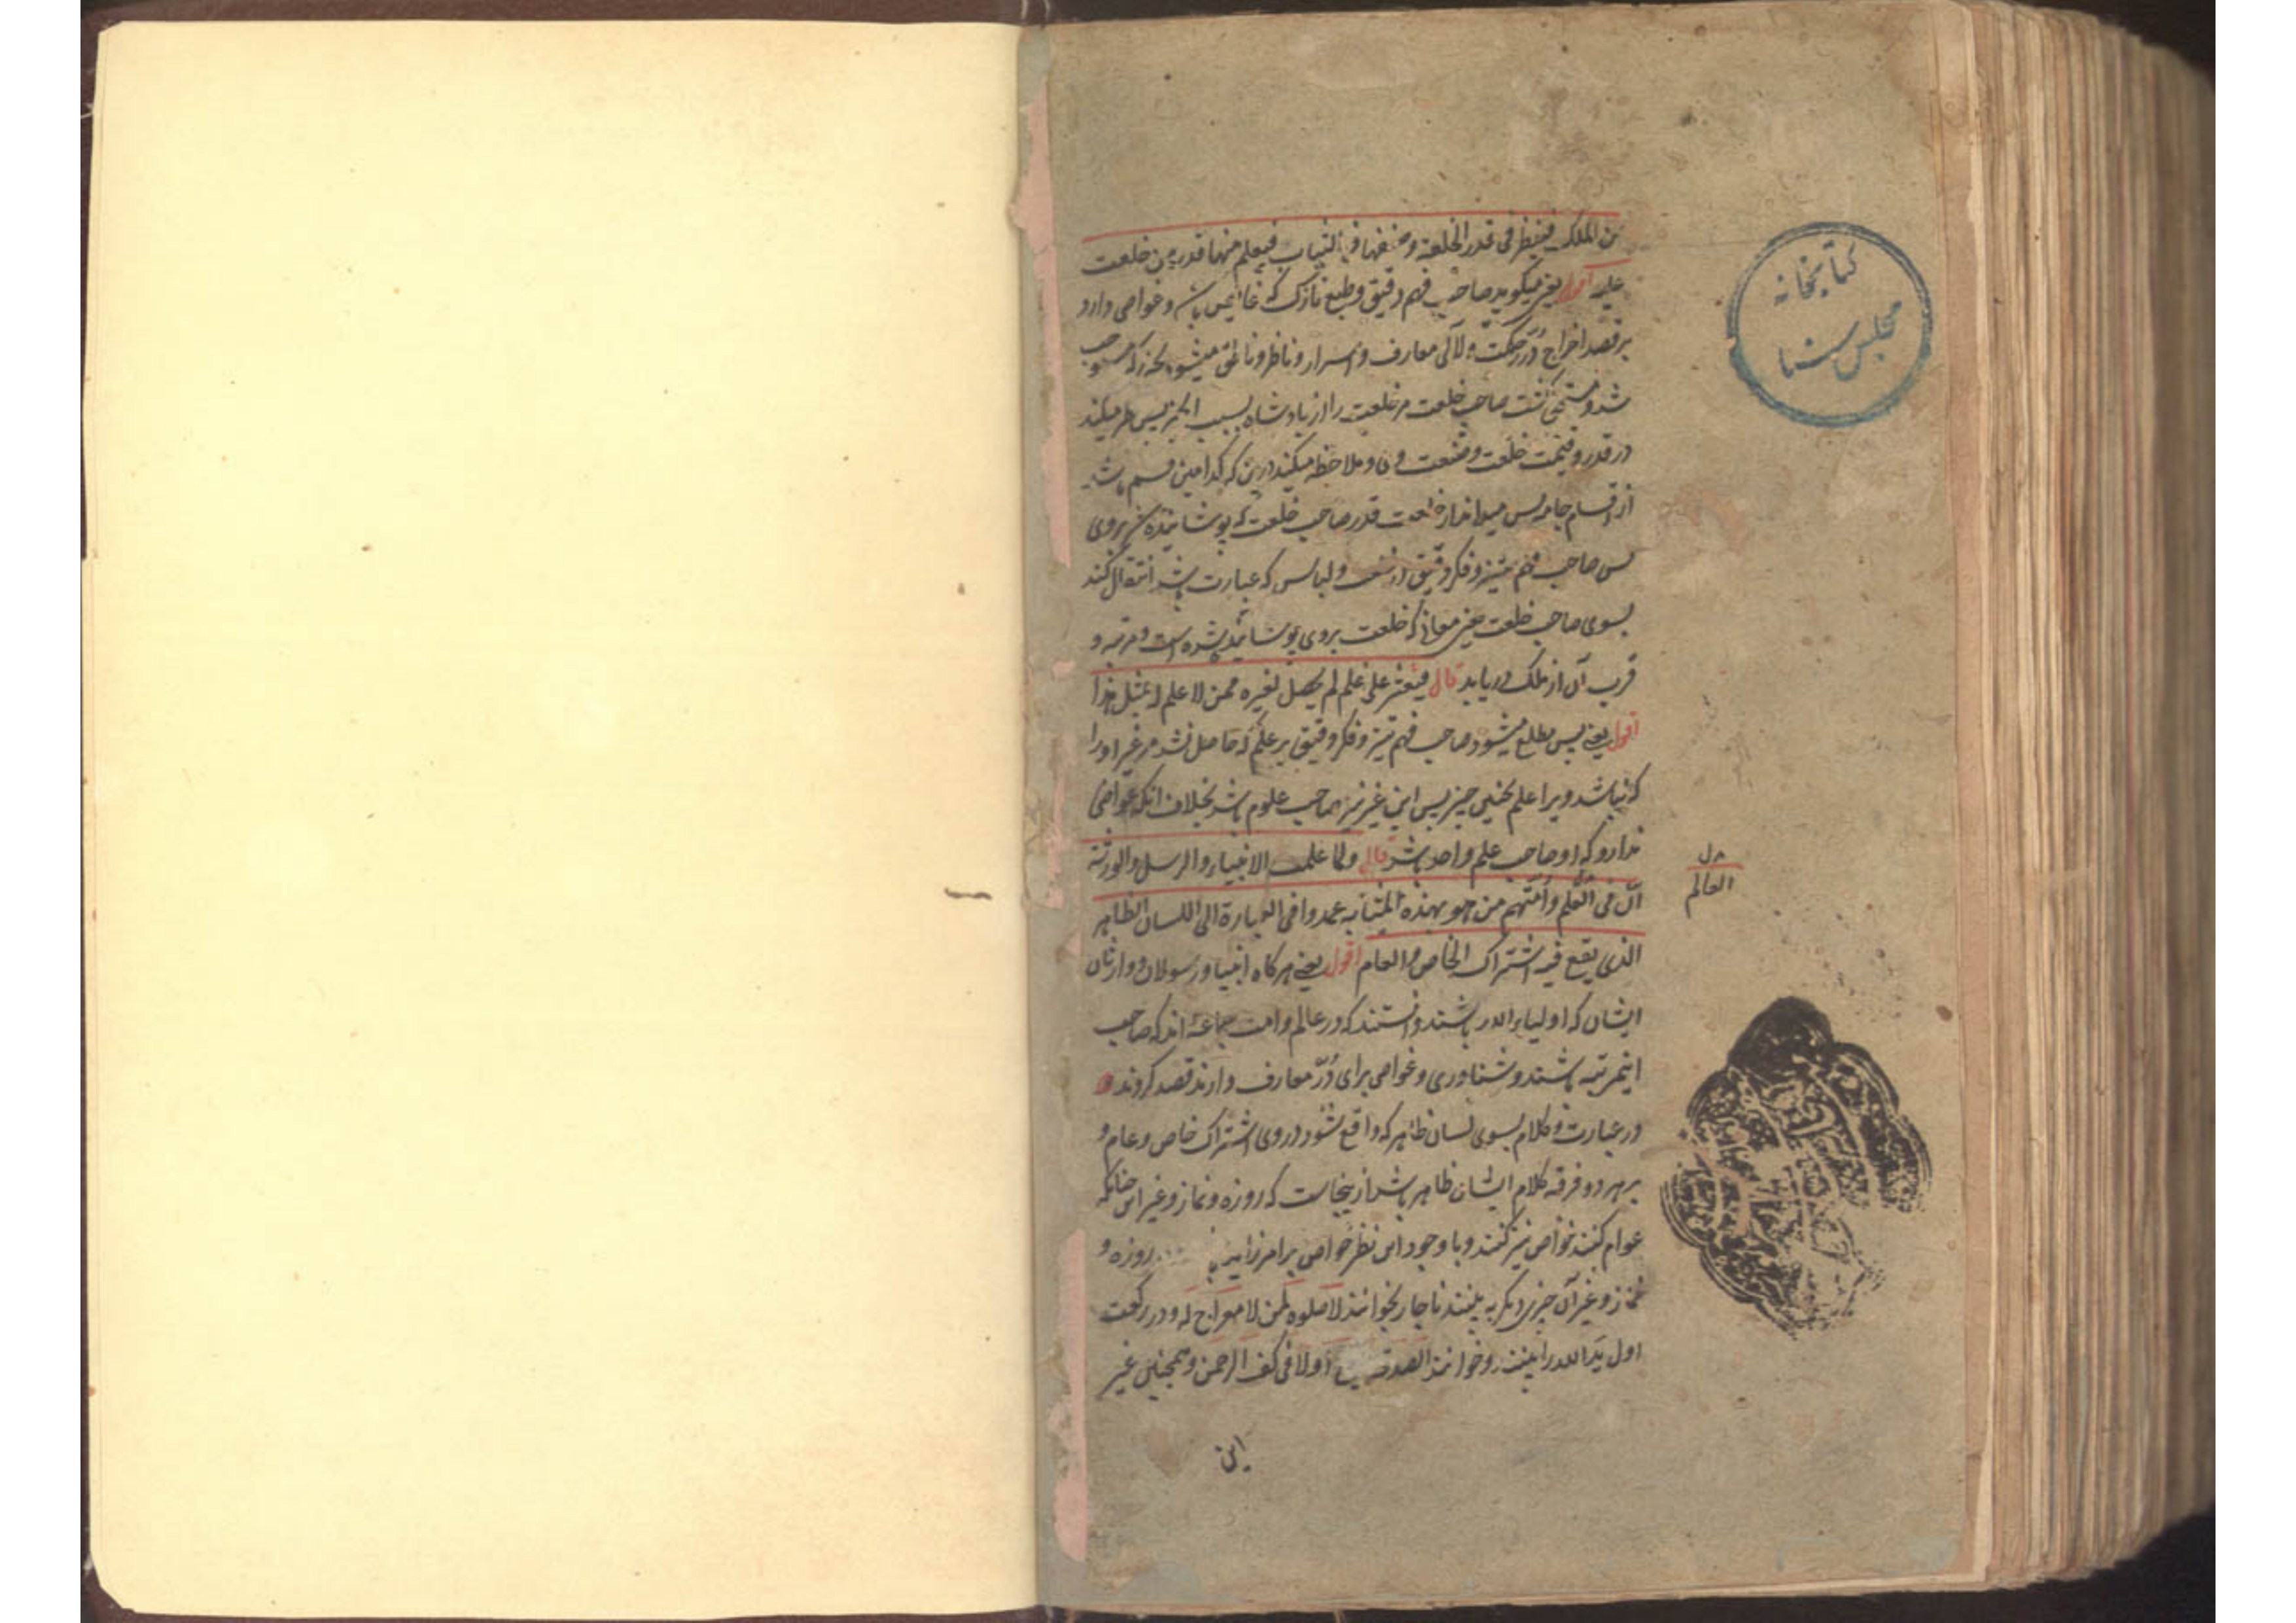 من الملك فینظر فی قدر الخلعة و صنفها من الثیاب فیعلم منها قدر من خلعت
علیه اقول یعنی میکوید صاحب فهم دقیق و طبع نازک که غایص باشد و غواصی دارد
بر قصد اخراج درر حکمت و لآلی معارف و اسرار و ناظر و میشود بچیزیکه مستوجب
شد و مستحق کشت صاحب خلعت مر خلعت را از پادشاه بسبب پس نظر میکند
در قدر و قیمت خلعت و صنعت وی و ملاحظه میکند در که کدامین قسم باشد
از اقسام جامه پس میداند از خلعت قدر صاحب خلعت که پوشانیده شد بروی
پس صاحب فهم تیز و فکر دقیق از و لباس که عبارت باشد انتقال کند
بسوی صاحب خلعت یعنی معانی که خلعت بروی پوشانیده شده است و مرتبه و
قرب آن از ملک دریابد قال فیعثر علی علم لم یحصل لغیره ممن لا علم له بمثل هذا
اقول یعنی پس مطلع میشود صاحب فهم تیز و فکر دقیق بر علمی که حاصل نشد مر غیر او را
که نباشد ویرا علم بچنین چیز پس این غیر نیز صاحب علوم باشد بخلاف آنکه غواصی
ندارد که او صاحب علم واحد باشد قال ولما علمت الانبیاء والرسل والورثة
ان فی العلم وامتهم من هو بهذه المثابه عمدوا فی العبارة الی اللسان الظاهر
الذی یقع فیه اشتراک الخاص والعام اقول یعنی هرکاه انبیا و رسولان و وارثان
ایشان که اولیاء الله باشند دانستند که در عالم و امت جماعه اند که صاحب
اینمرتبه باشند و شناوری و غواصی برای در معارف دارند قصد کردند
در عبارت و کلام بسوی لسان ظاهر که واقع شود در وی اشتراک خاص و عام و
بر هر دو فرقه کلام ایشان ظاهر باشد از ینجاست که روزه و نماز و غیر این چنانکه
عوام کنند خواص نیز کنند و با وجود این نظر خواص بر امر زاید روزه و
نماز و غیر آن چیزی دیکر به بینند ناچار بخوانند لا صلوة لمن لا معراج له و در رکعت
اول ید الله را بینند و خوانند الصدقة اولا فی کف الرحمن و همچنین غیر
این
العالم
کتابخانه
مجلس سنا